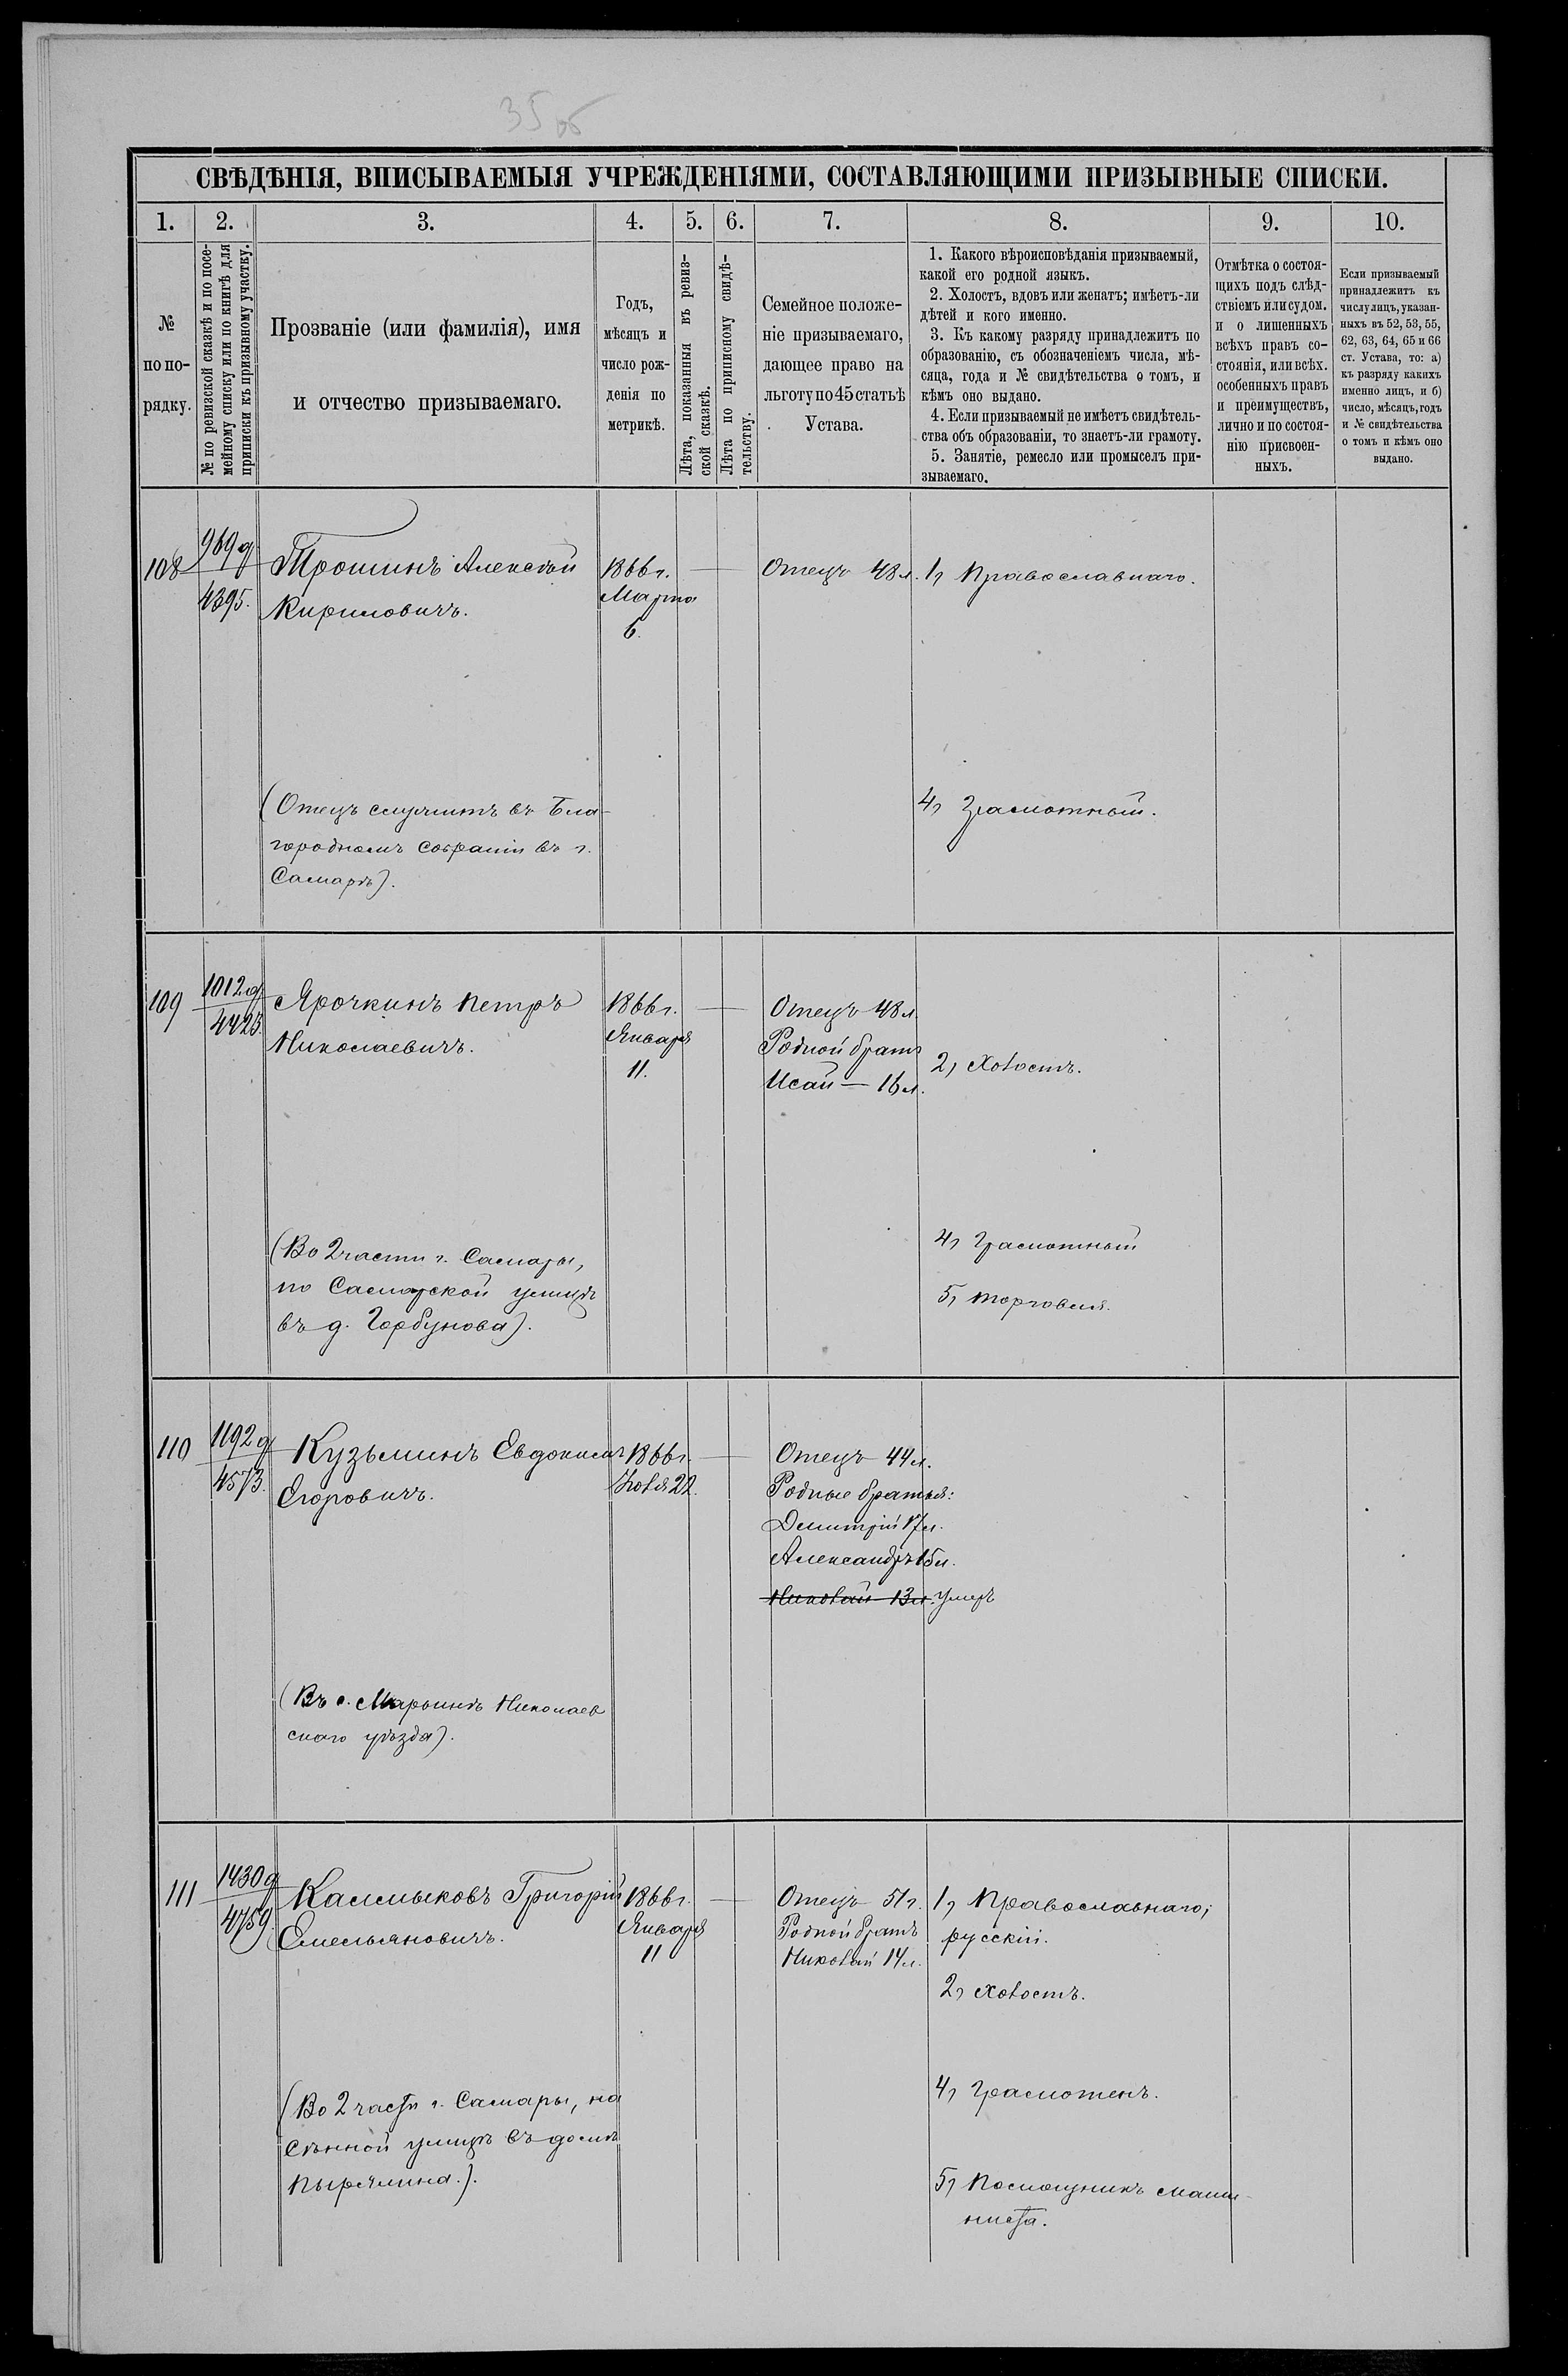 35 об
СВѢДѢНІЯ, ВПИСЫВАЕМЫЯ УЧРЕЖДЕНІЯМИ, СОСТАВЛЯЮЩИМИ ПРИЗЫВНЫЕ СПИСКИ.
1.
2.
3.
4.
5.
6.
7.
8.
9.
10.
№
по по-
рядку.
№ по ревизской сказкѣ и по посе-
мейному списку или по книгѣ для
приписки къ призывному участку.
Прозваніе (или фамилія), имя
и отчество призываемаго.
Годъ,
мѣсяцъ и
число рож-
денія по
метрикѣ.
Лѣта, показанныя въ ревиз-
ской сказкѣ.
Лѣта по приписному свидѣ-
тельству.
Семейное положе-
ніе призываемаго,
дающее право на
льготу по 45 статьѣ
Устава.
1. Какого вѣроисповѣданія призываемый,
какой его родной языкъ.
2. Холостъ, вдовъ или женатъ; имѣетъ-ли
дѣтей и кого именно.
3. Къ какому разряду принадлежитъ по
образованію, съ обозначеніемъ числа, мѣ-
сяца, года и № свидѣтельства о томъ, и
кѣмъ оно выдано.
4. Если призываемый не имѣетъ свидѣтель-
ства объ образованіи, то знаетъ-ли грамоту.
5. Занятіе, ремесло или промыселъ при-
зываемаго.
Отмѣтка о состоя-
щихъ подъ слѣд-
ствіемъ или судом.
и о лишенныхъ
всѣхъ правъ со-
стоянія, или всѣх.
особенныхъ правъ
и преимуществъ,
лично и по состоя-
нію присвоен-
ныхъ.
Если призываемый
принадлежитъ къ
числу лицъ, указан-
ныхъ въ 52, 53, 55,
62, 63, 64, 65 и 66
ст. Устава, то: а)
къ разряду какихъ
именно лицъ, и б)
число, мѣсяцъ, годъ
и № свидѣтельства
о томъ и кѣмъ оно
выдано.
108
969 д
4395.
Трошинъ Алексѣй
Кириловичъ.
1866 г.
Марта
6.
Отецъ 48 л.
1, Православнаго.
(Отецъ служитъ въ Бла-
городномъ собраніи въ г.
Самарѣ).
4, Грамотный.
109
1012 д
4425.
Ярочкинъ Петръ
Николаевичъ.
1866 г.
Января
11.
Отецъ 48 л.
Родной братъ
Исай — 16 л.
2, Холостъ.
(Во 2 части г. Самары,
по Самарской улицѣ
въ д. Горбунова).
4, Грамотный
5, Торговля.
110
1192 д
4573.
Кузьминъ Евдокимъ
Егоровичъ.
1866 г.
Іюля 22.
Отецъ 44 л.
Родные братья:
Димитрій 17 л.
Александръ 15 л.
Николай 13 л. умеръ
(Въ с. Марьинѣ Николаев
скаго уѣзда).
111
1430 д
4759.
Калмыковъ Григорій
Емельяновичъ.
1866 г.
Января
11
Отецъ 51 г.
Родной братъ
Николай 14 л.
1, Православнаго,
русскій.
2, Холостъ.
(Во 2 части г. Самары, на
Сѣнной улицѣ въ домѣ
4, Грамотенъ.
5, Помощникъ маши-
ниста.